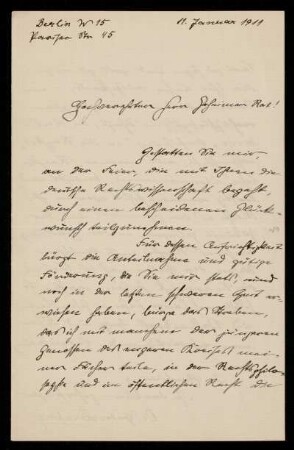 Berlin W 15 11. Januar 1911
Pariser Str. 45
Hochverehrter Herr Geheimer Rat!
Gestatten Sie mir,
an der Feier, die mit Ihnen die
deutsche Rechtswissenschaft begeht,
durch einen bescheidenen Glück-
wunsch teilzunehmen.
Für dessen Aufrichtigkeit
bürgt die Anteilnahme und gütige
Förderung, die Sie mir stets, und
noch in der letzten schweren Zeit er-
wiesen haben, bürge das Streben,
das ich mit manchem der jüngeren
Genossen des engeren Kreises mei-
ner Fächer teile, in der Rechtsphilo-
sophie und im öffentlichen Recht die